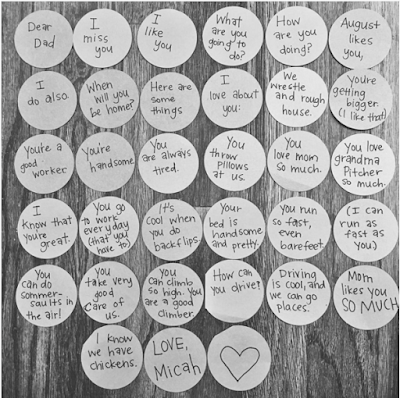 Dear
Dad
I
miss
you
I
like
you
What
are you
going to
do?
How
are you
doing?
August
likes
you,
I
do also.
When
will you
be home?
Here are
some
things
I
love about
you:
We
wrestle
and rough
house.
You're
getting
bigger
(I like that)
You're a
good
worker
You're
handsome.
You
are always
tired.
You
throw
pillows
at us.
You
love mom
so much.
You love
grandma
Pitcher
so much.
I
Know that
you're
great.
You go
to work
everyday
(that you
have to)
It's
cool when
you do
backflips.
Your
bed is
handsome
and pretty.
You run
so fast,
even
barefeet.
(I can
run as
fast as
you)
You
can do
sommer-
saults in
the air!
You
take very
good
care of
us.
You
can climb
so high. You
are a good
climber.
How can
you drive?
Driving
is cool, and
we can go
places.
Mom
likes you
SO MUCH
I know
we have
chickens.
LOVE,
Micah